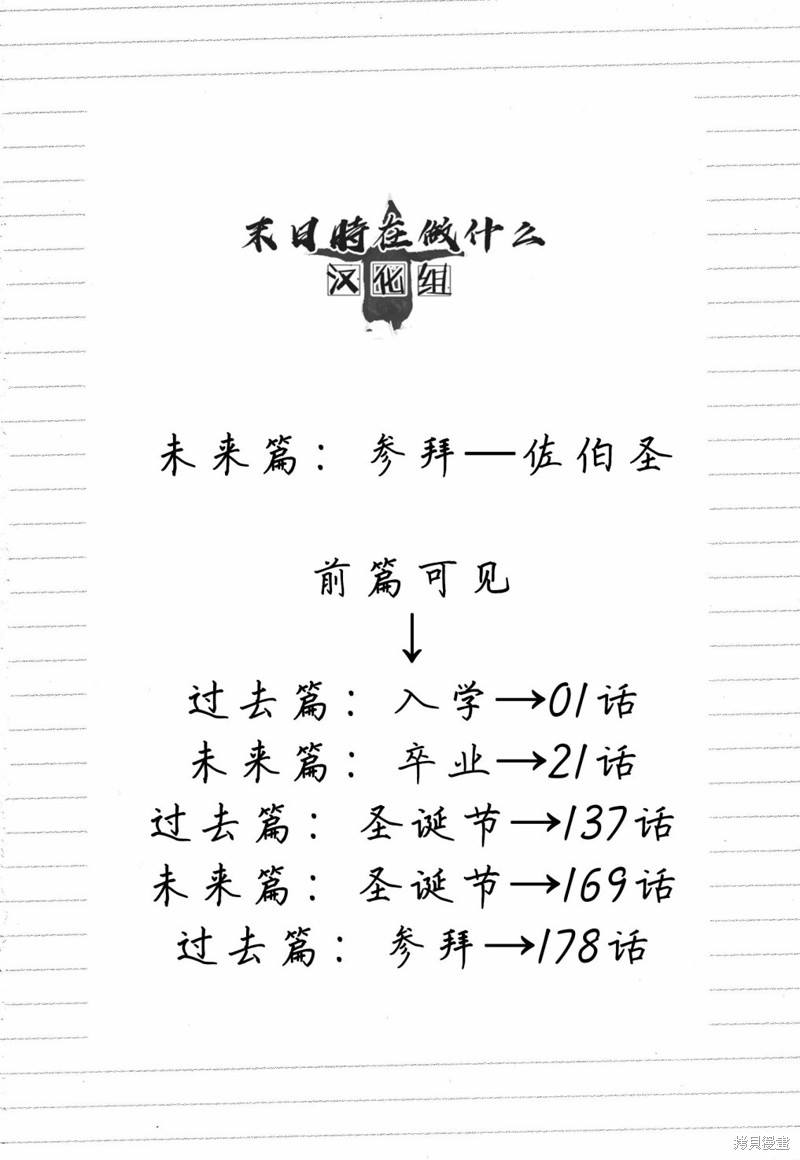 末日時在做什么
汉化组
未来篇：参拜—佐伯圣
前篇可见
↓
过去篇：入学→01话
未来篇：卒业→21话
过去篇：圣诞节→137话
未来篇：圣诞节→169话
过去篇：参拜→178话
拷貝漫畫